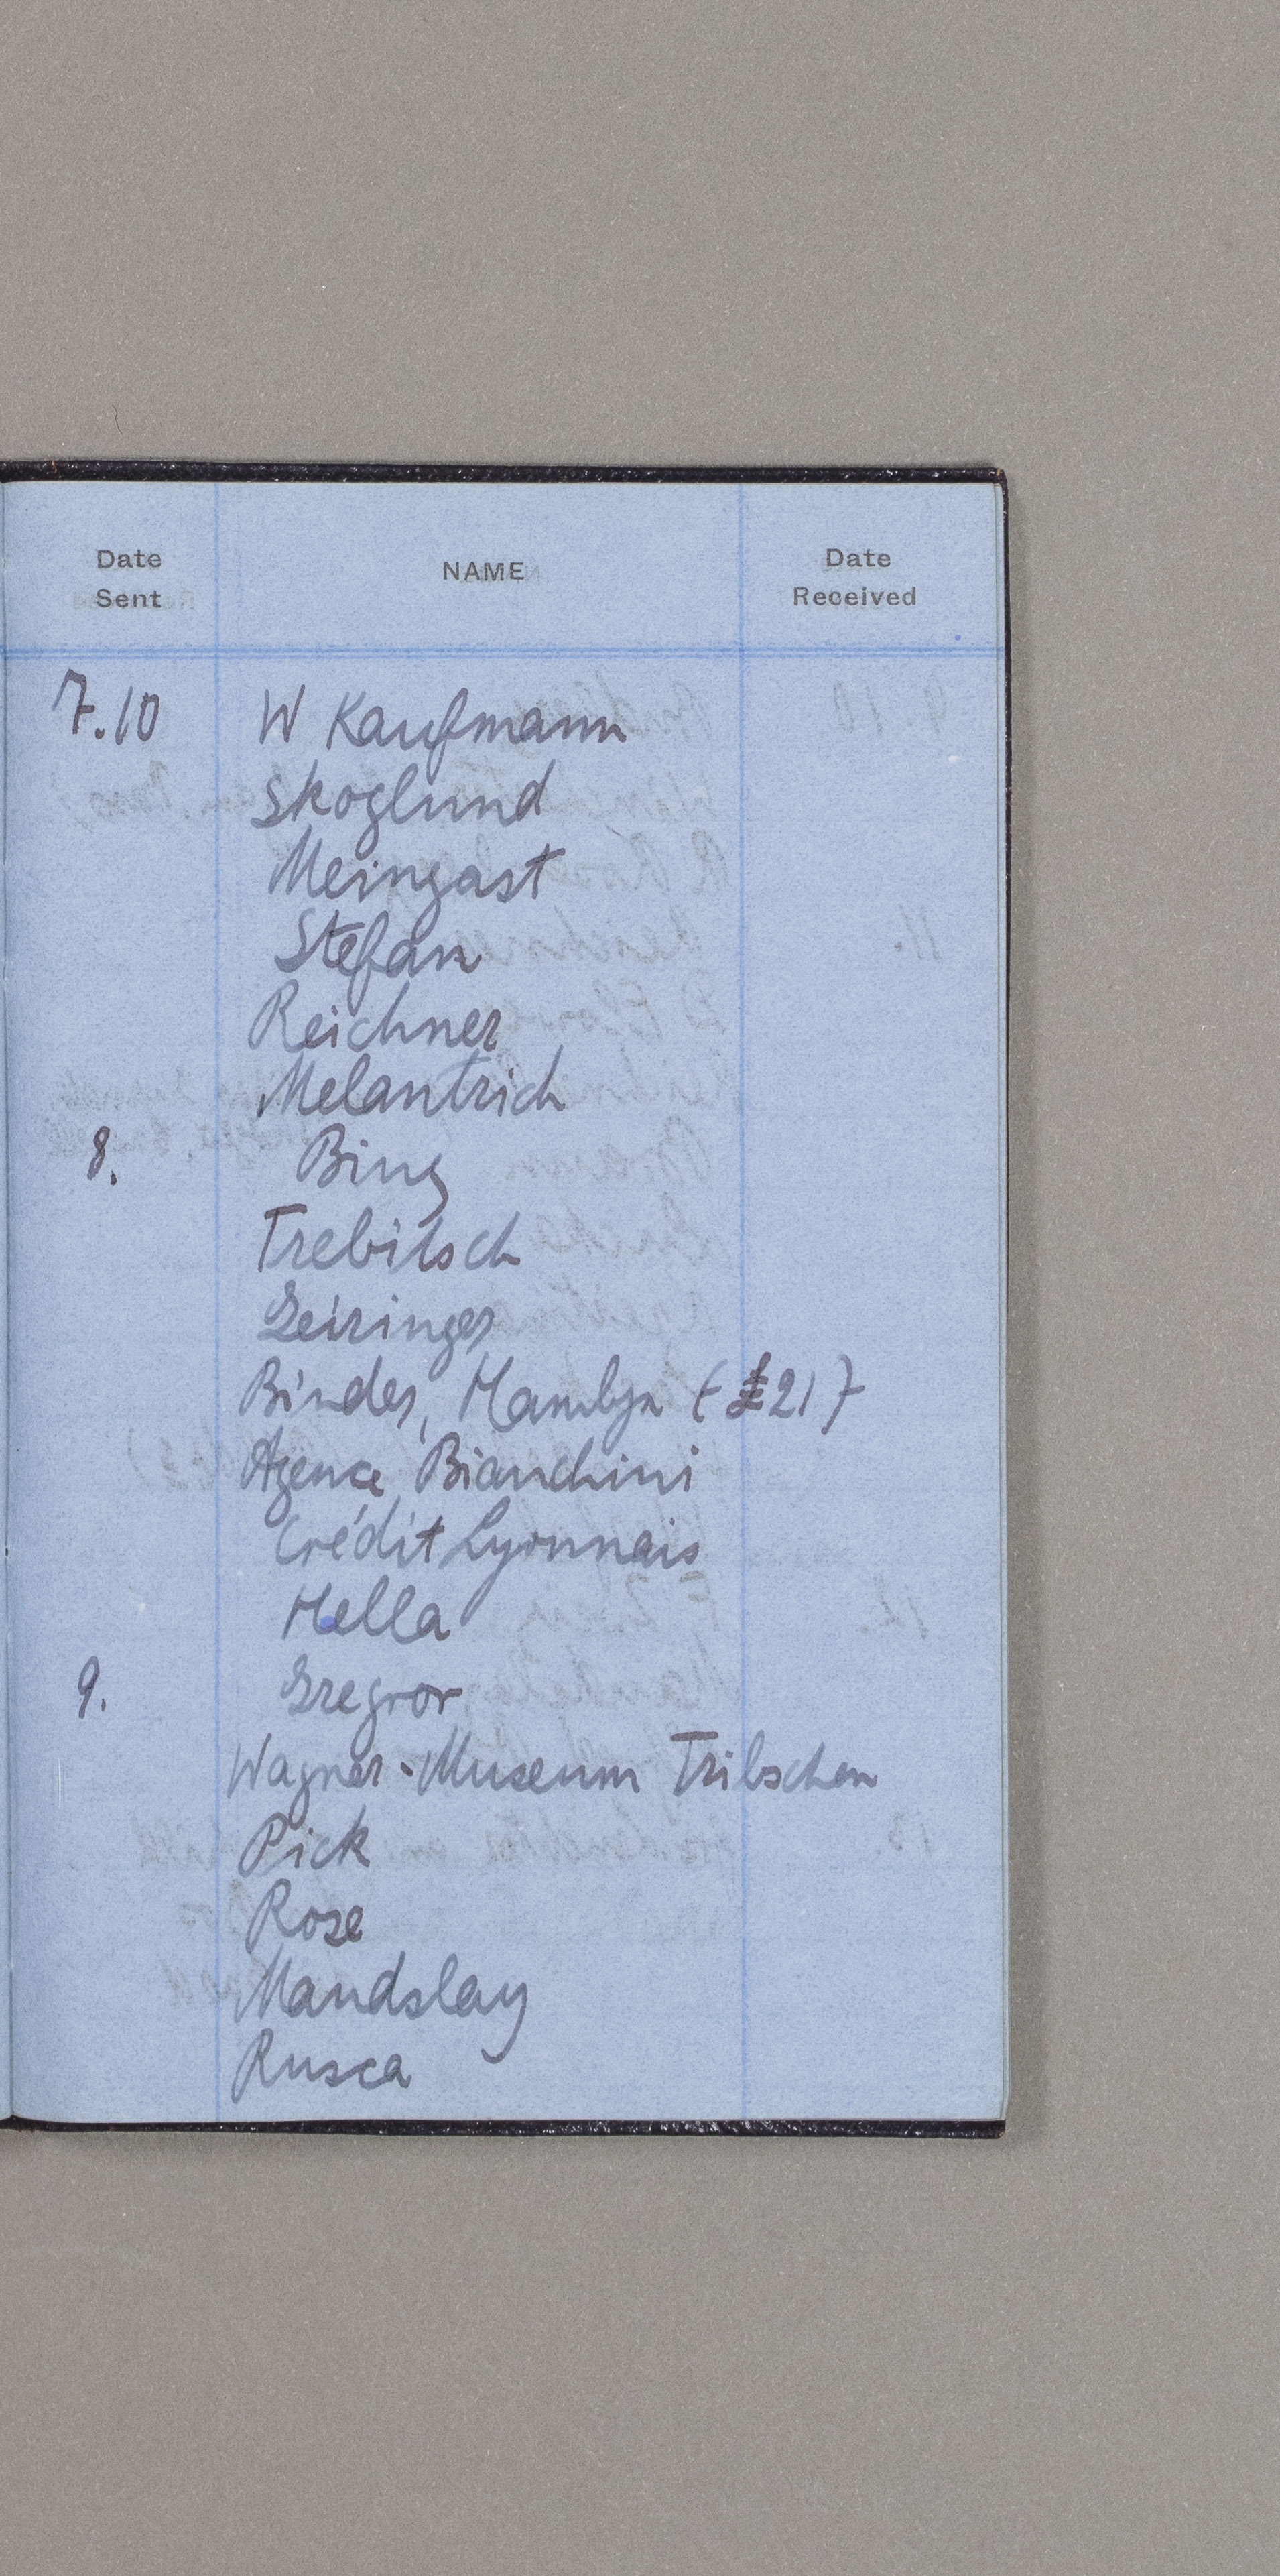 Date Sent NAME Date Received
7.10 W Kaufmann
Skoglund
Meingast
Stefan
Reichner
Melantrich
8. Bing
Trebitsch
Geiringer
Binder, Hamlyn (£21)
Agence Bianchini
Crédit Lyonnais
Hella
9. Gregror
Wagner-Museum Tribschen
Pick
Rose
Mandslay
Rusca